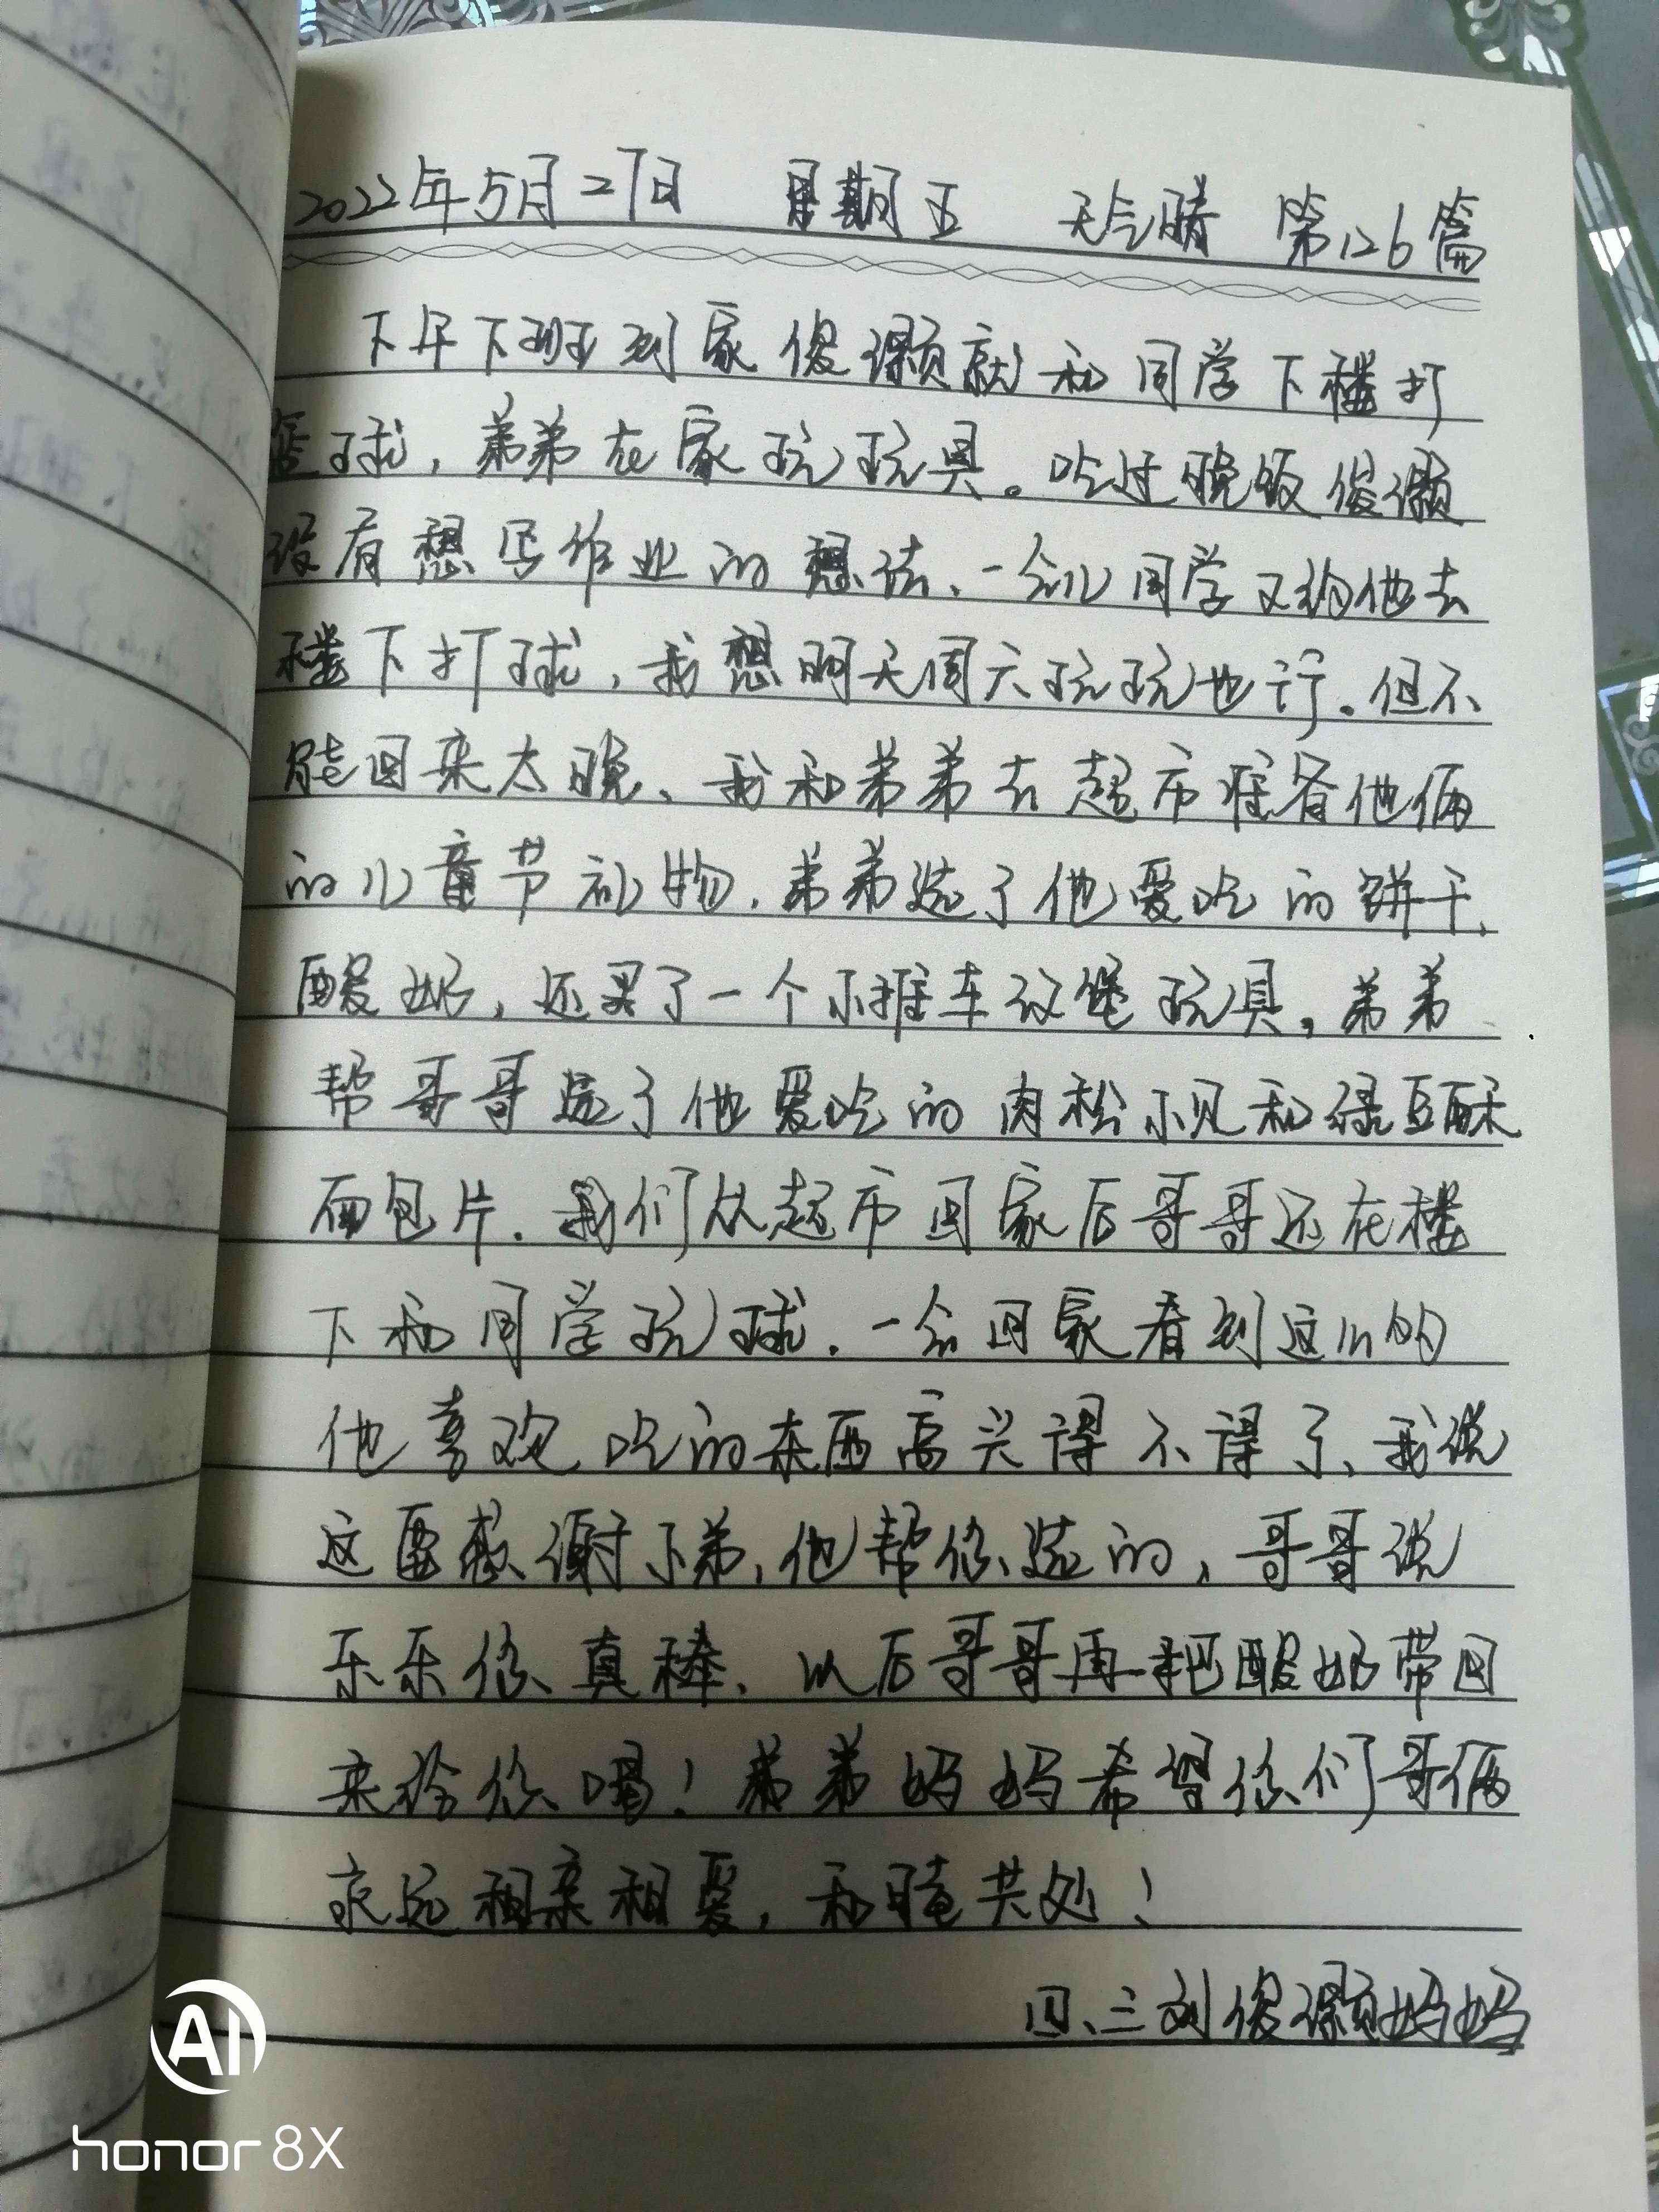 2022年5月27日 星期五 天气晴 第126篇
下午下班到家俊灏就和同学下楼打
篮球，弟弟在家玩玩具。吃过晚饭俊灏
没有想写作业的想法、一会儿同学又约他去
楼下打球，我想明天周六玩玩也行。但不
能回来太晚、我和弟弟去超市准备他俩
的儿童节礼物.弟弟选了他爱吃的饼干、
酸奶，还买了一个小推车汉堡玩具，弟弟
帮哥哥选了他爱吃的肉松小贝和绿豆酥
面包片.我们从超市回家后哥哥还在楼
下和同学玩球.一会回家看到这么的
他喜欢吃的东西高兴得不得了、我说
这要感谢小弟，他帮你选的，哥哥说
乐乐你真棒、以后哥哥再把酸奶带回
来给你喝！弟弟妈妈希望你们哥俩
永远相亲相爱，和睦共处！
四、三刘俊灏妈妈
AI
honor 8X